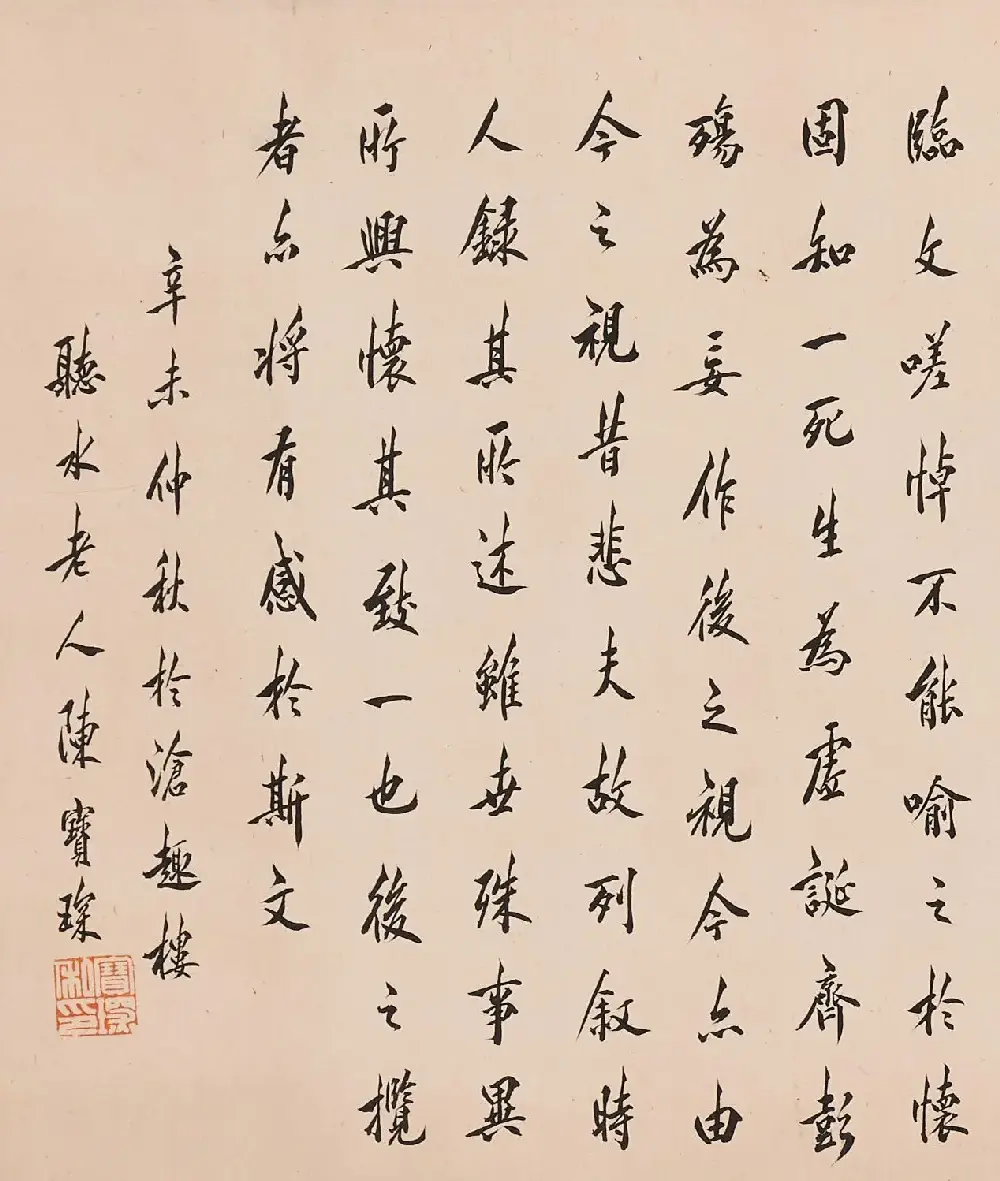 臨文嗟悼不能喻之於懷
固知一死生為虛誕齊彭
殤為妄作後之視今亦由
今之視昔悲夫故列叙時
人録其所述雖世殊事異
所興懷其致一也後之攬
者亦将有感於斯文
辛未仲秋於滄趣樓
聽水老人陳寶琛
寶琛私印